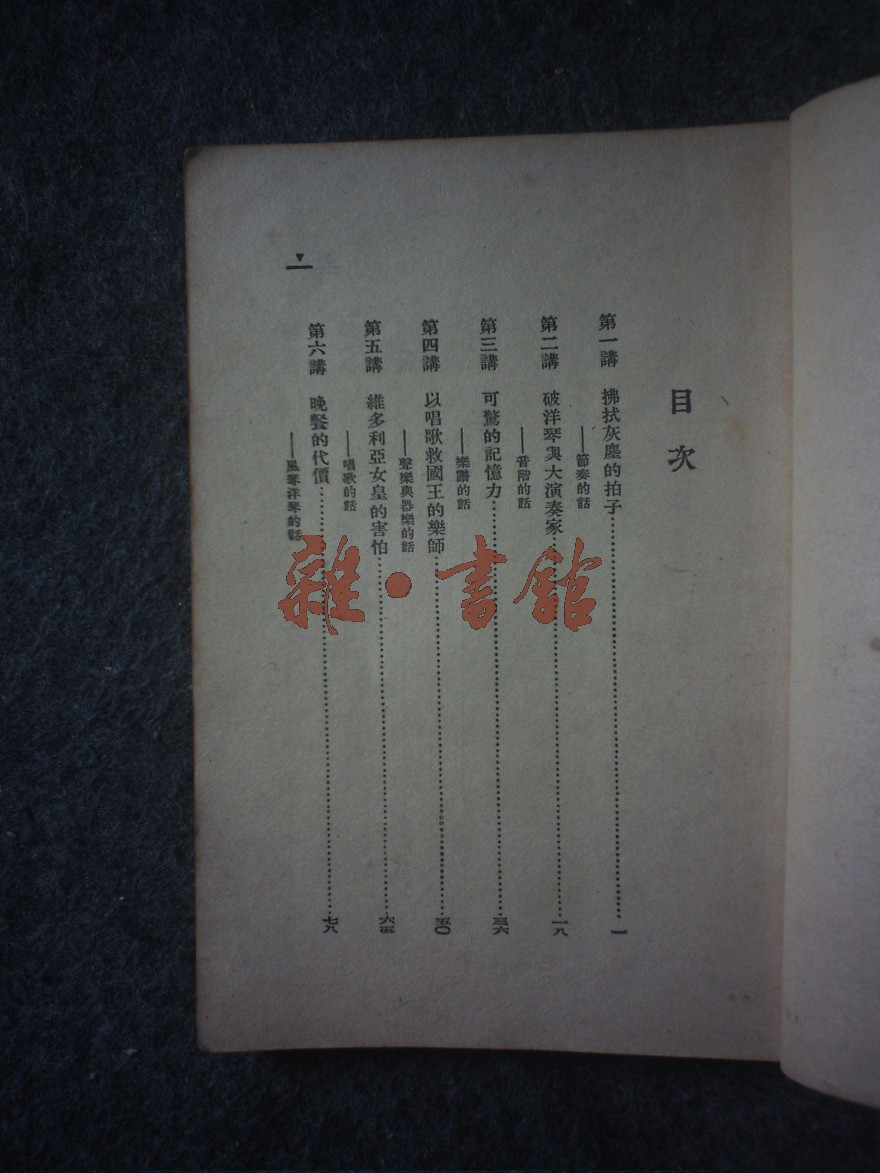 目次
第一講 拂拭灰塵的拍子……一
——節奏的話
第二講 破洋琴與大演奏家……一八
——音階的話
第三講 可驚的記憶力……三六
——樂譜的話
第四講 以唱歌救國王的樂師……五〇
——聲樂與器樂的話
第五講 維多利亞女皇的害怕……六五
——唱歌的話
第六講 晚餐的代價……七八
——風琴洋琴的話
一
雜·書館